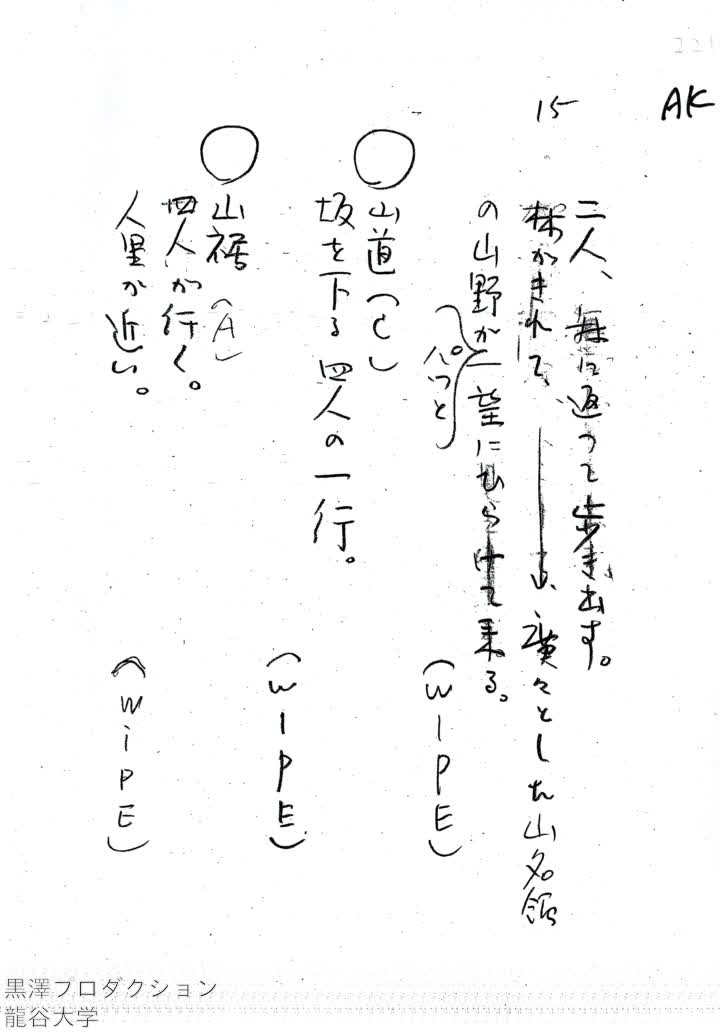 AK
15
二人、無に返って歩き出す。
林がきれて、
廣々とした山名領
の山野が一望にひらけて来る。
パッと
(WIPE)
○山道(C)
坂を下る四人の一行。
(WIPE)
○山裾(A)
四人が行く。
人里が近い。
(WIPE)
黒澤プロダクション
龍谷大学